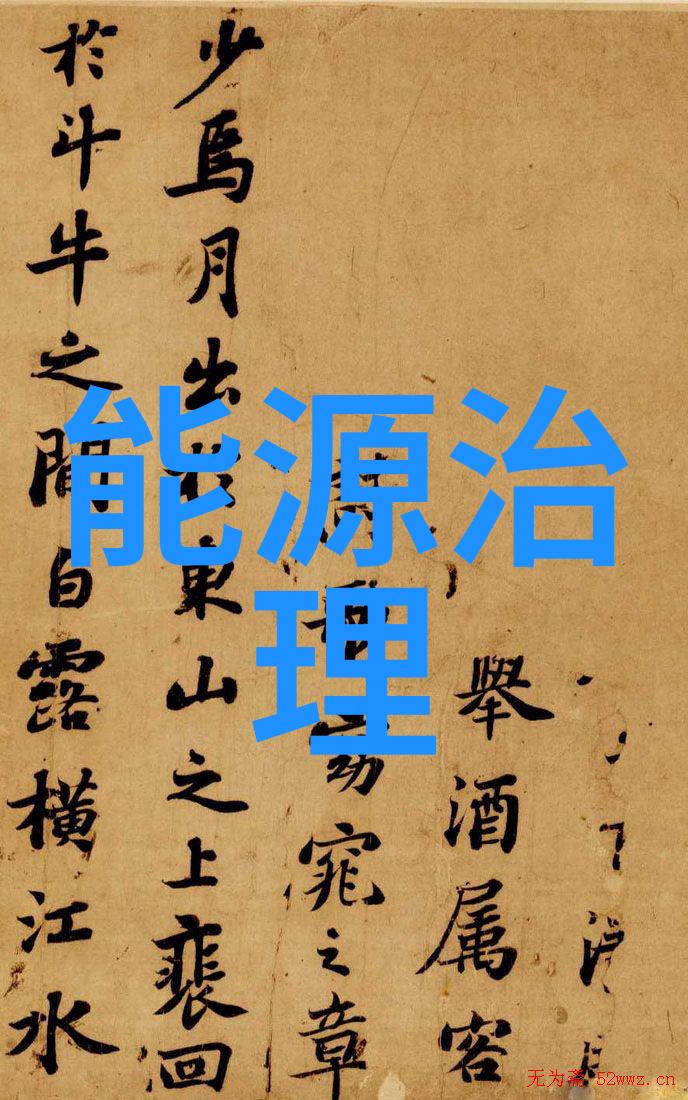 舉酒属客
窕之章
少焉月出於東山之上裴回
於斗牛之間白露橫江水
能源治
理
无为斋 52wwz.cn